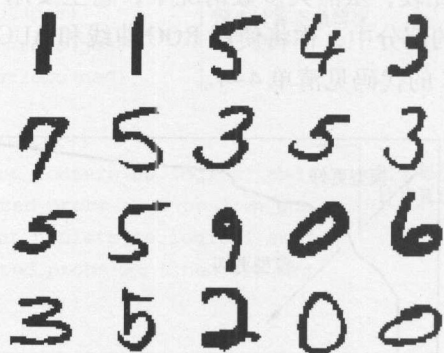 1 1 5 4 3
7 5 3 5 3
5 5 9 0 6
3 5 2 0 0